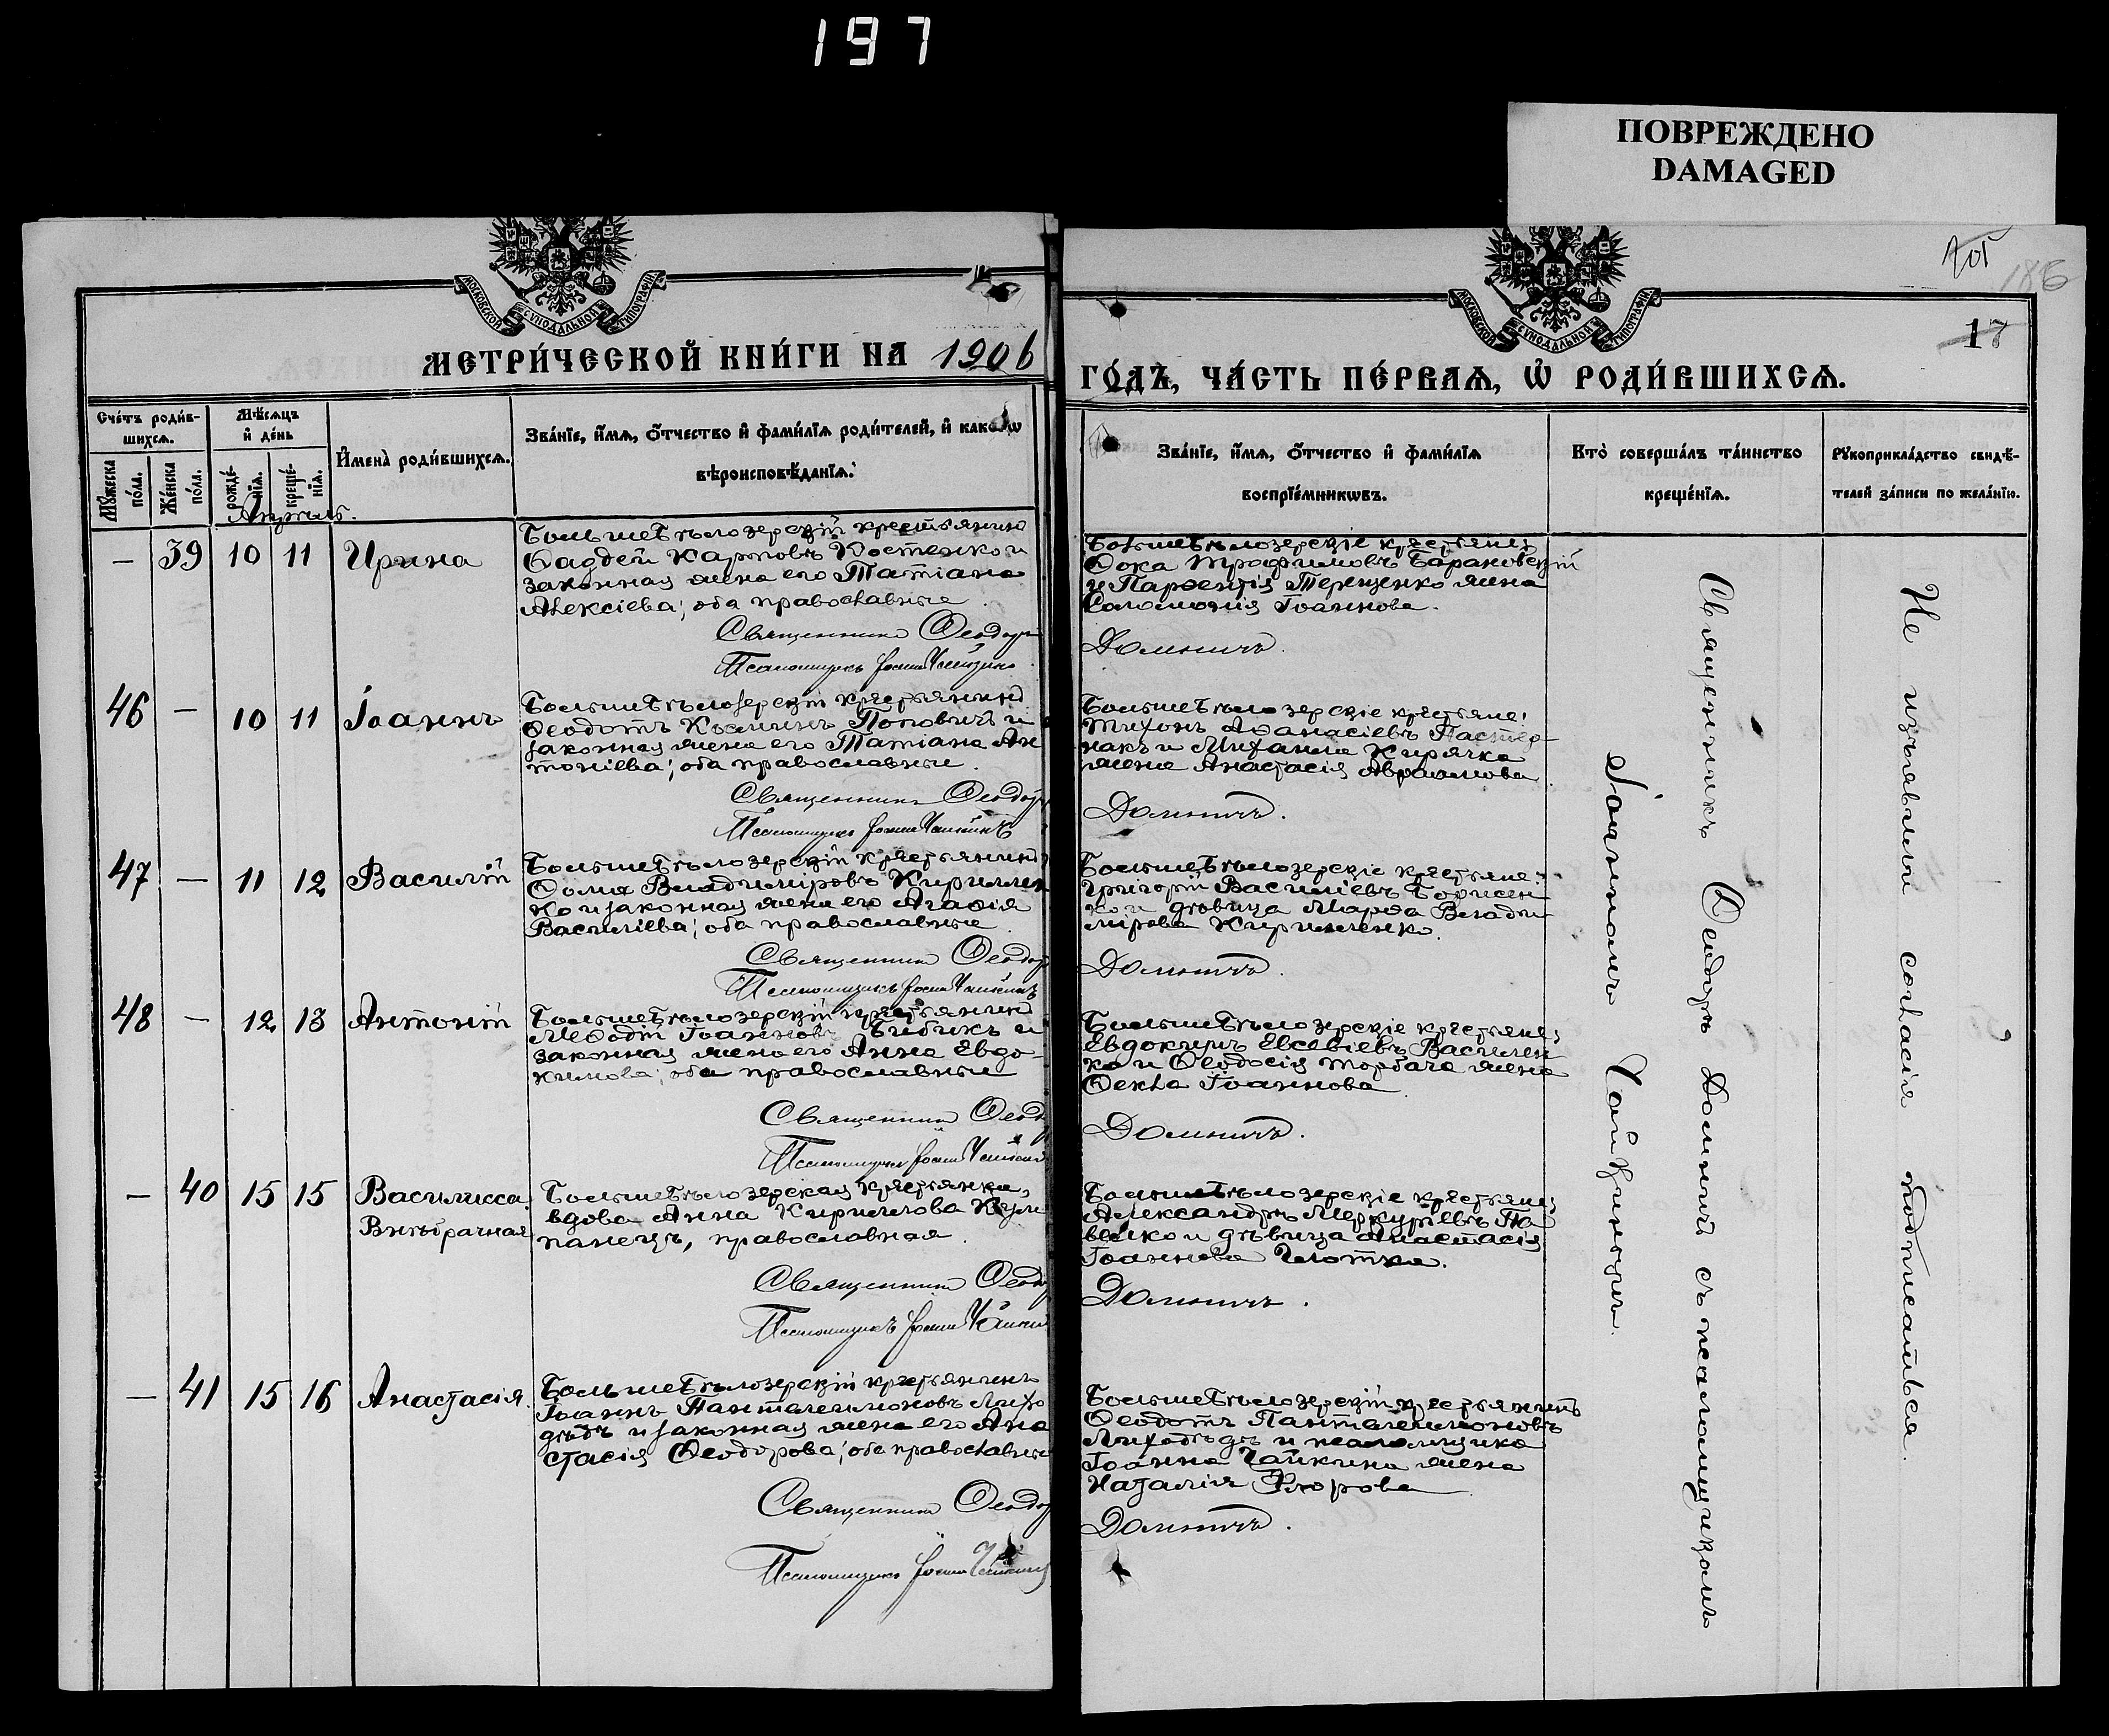 197
ПОВРЕЖДЕНО
DAMAGED
201
186
17
МОСКОВСКОЙ СѴНОДАЛЬНОЙ ТИПОГРАФІИ
МОСКОВСКОЙ СѴНОДАЛЬНОЙ ТИПОГРАФІИ
МЕТРИ́ЧЕСКОЙ КНИ́ГИ НА 1906
ГО́ДЪ, ЧА́СТЬ ПЕ́РВАѦ, Ѡ҆ РОДИ́ВШИХСѦ.
Сче́тъ роди́в-
шихсѧ.
Мꙋ́жеска по́ла.
Же́нска по́ла.
Мѣ́сѧцъ
и҆ де́нь
рожде́-
нїѧ.
креще́-
нїѧ.
И҆мена̀ роди́вшихсѧ.
Зва́нїе, и҆́мѧ, ѻ҆́тчество и҆ фами́лїѧ роди́телей, и҆ како́гѡ
вѣроисповѣ́данїѧ.
Зва́нїе, и҆́мѧ, ѻ҆́тчество и҆ фами́лїѧ
воспрїе́мникѡвъ.
Кто̀ соверша́лъ та́инство
креще́нїѧ.
Рꙋкоприкла́дство свидѣ́-
телей за́писи по жела́нїю.
Апрѣль.
— 39 10 11 Ирина
Большебѣлозерскій крестьянинъ
Ѳаддей Карповъ Костенко и
законная жена его Татіана
Алексіева; оба православные
Священникъ Ѳеодоръ
Псаломщикъ Іоаннъ Чайкинъ
Большебѣлозерскіе крестьяне:
Ѳока Трофимовъ Барановскій
и Парѳентія Терещенко жена
Соломонія Іоаннова.
Домничъ.
46 — 10 11 Іоаннъ
Большебѣлозерскій крестьянинъ
Ѳеодотъ Косминъ Поповичъ и
законная жена его Татіана Ан
тоніева; оба православные
Священникъ Ѳеодоръ
Псаломщикъ Іоаннъ Чайкинъ
Большебѣлозерскіе крестьяне:
Тихонъ Аѳанасіевъ Пастер-
накъ и Михаила Кирячка
жена Анастасія Авраамова
Домничъ.
47 — 11 12 Василій
Большебѣлозерскій крестьянинъ
Ѳома Владиміровъ Кириллен
ко и законная жена его Агаѳія
Василіева; оба православные
Священникъ Ѳеодоръ
Псаломщикъ Іоаннъ Чайкинъ
Большебѣлозерскіе крестьяне:
Григорій Василіевъ Борисен
ко и дѣвица Марѳа Влади
мірова Кириленко.
Домничъ.
48 — 12 13 Антоній
Большебѣлозерскій крестьянинъ
Меѳодій Іоанновъ Бибикъ и
законная жена его Анна Евдо-
кимова; оба православные
Священникъ Ѳеодо
Псаломщикъ Іоаннъ Чайкинъ
Большебѣлозерскіе крестьяне:
Евдокимъ Евсевіевъ Василен
ко и Ѳеодосія Торбача жена
Ѳекла Іоаннова
Домничъ.
— 40 15 15 Василисса
Внѣбрачная
Большебѣлозерская крестьянка,
вдова Анна Кириллова
православная
Священникъ Ѳеодо
Псаломщикъ Іоаннъ Чайкинъ
Большебѣлозерскіе крестьяне:
Александръ Меркуріевъ Па
велко и дѣвица Анастасія
Іоаннова Глотка.
Домничъ.
— 41 15 16 Анастасія.
Большебѣлозерскій крестьянинъ
Іоаннъ Пантелеимоновъ Лихо
дѣдъ и законная жена его Ана
стасія Ѳеодорова; оба православные
Священникъ Ѳеодор
Псаломщикъ Іоаннъ Чайкинъ
Большебѣлозерскій крестьянинъ
Ѳеодотъ Пантелеимоновъ
Лиходѣдъ и псаломщика
Іоанна Чайкина жена
Наталія Флорова
Домничъ.
Священникъ Ѳеодоръ Домничъ съ псаломщикомъ
Іоанномъ Чайкинымъ.
Не изъявили согласія подписаться.